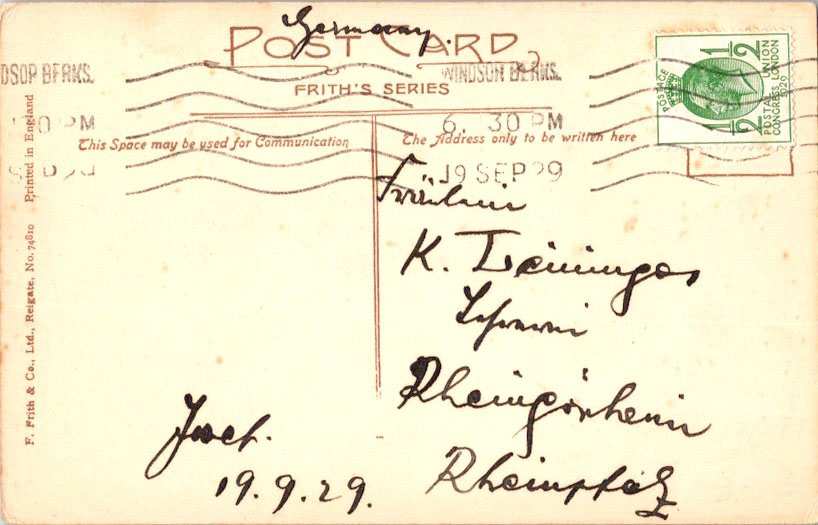 Germany.
POST CARD
DSOR BERKS.
WINDSOR BERKS.
FRITH'S SERIES
30 PM
6. 30 PM
This Space may be used for Communication
The Address only to be written here
19 SEP 29
POSTAGE
1/2
1/2
POSTAL UNION
CONGRESS LONDON
1929
Printed in England
F. Frith & Co., Ltd., Reigate, No. 74810
Fräulein
K. Leininger
Rheingönheim
Rheinpfalz
Josef.
19.9.29.